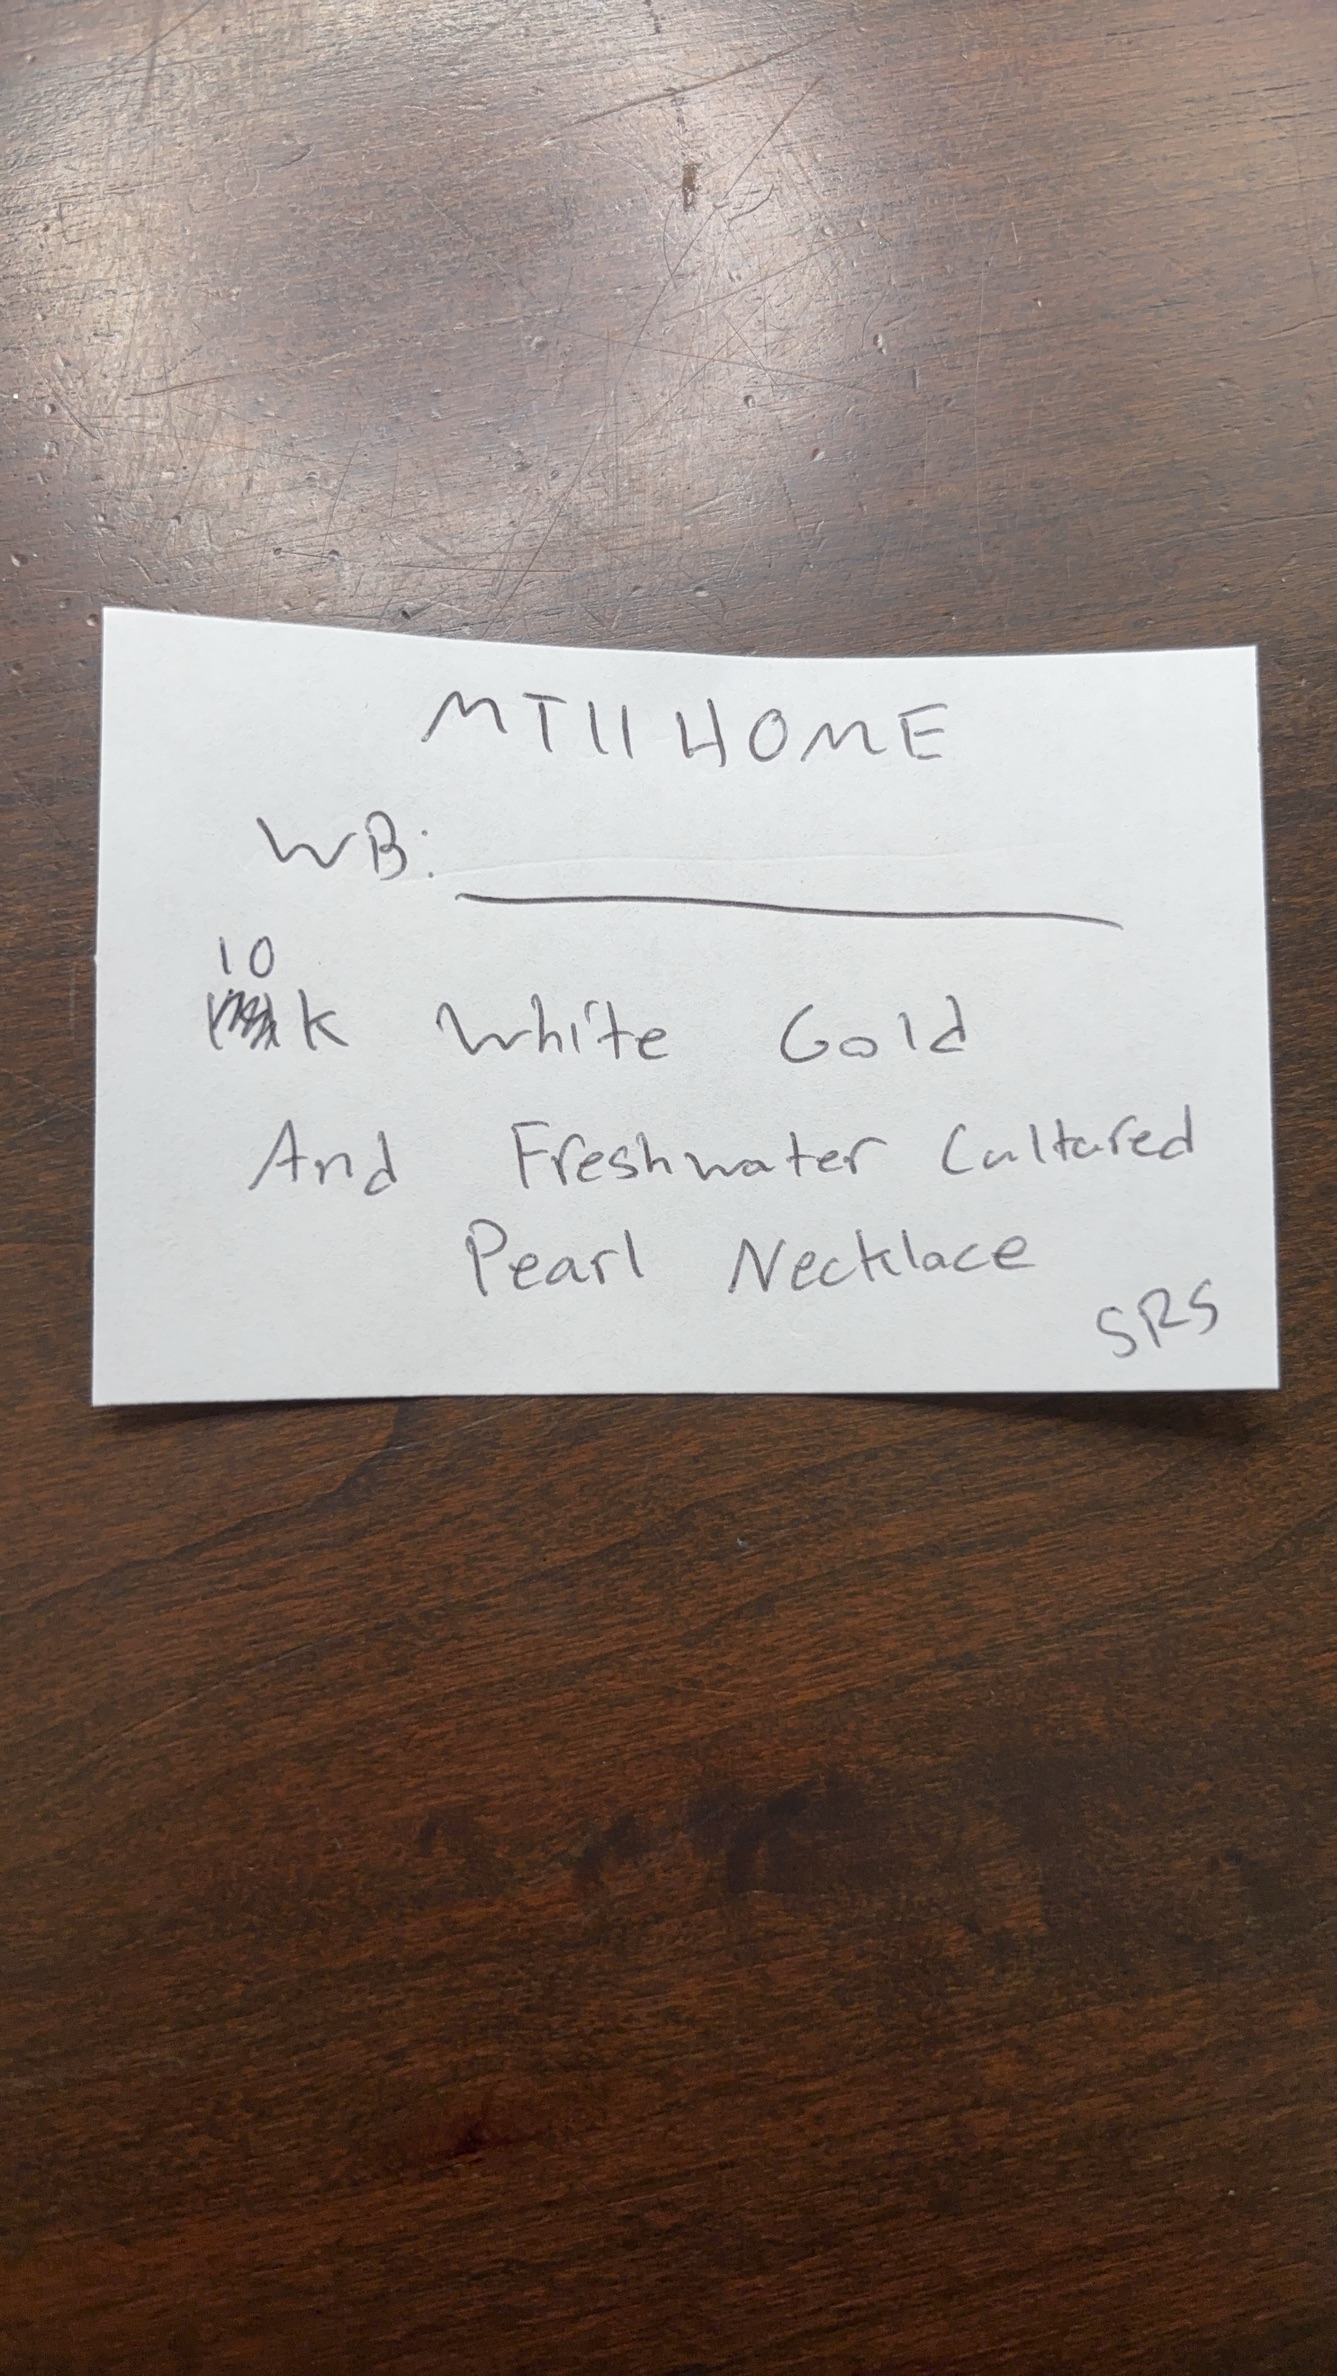 MT11HOME
WB: ____________
10
k White Gold
And Freshwater Cultured
Pearl Necklace
SRS